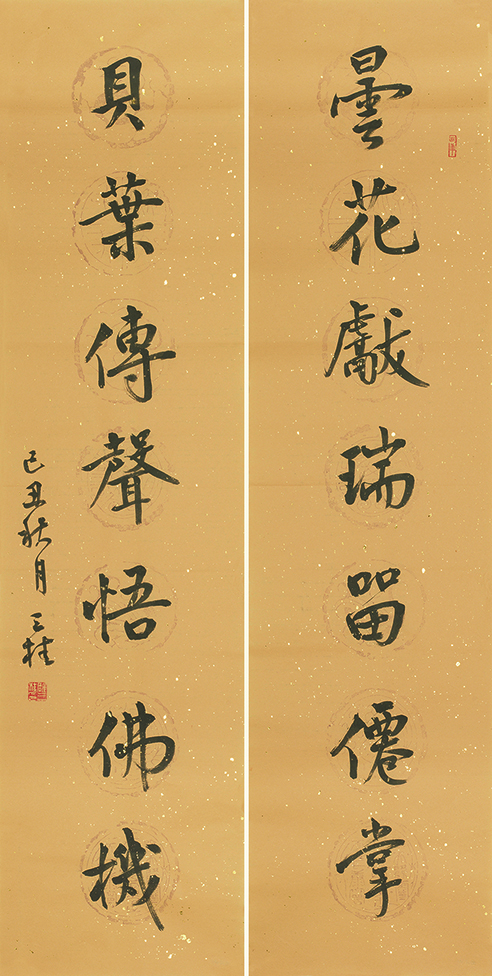 曇花獻瑞留僊掌
貝葉傳聲悟佛機
己丑秋月三桂